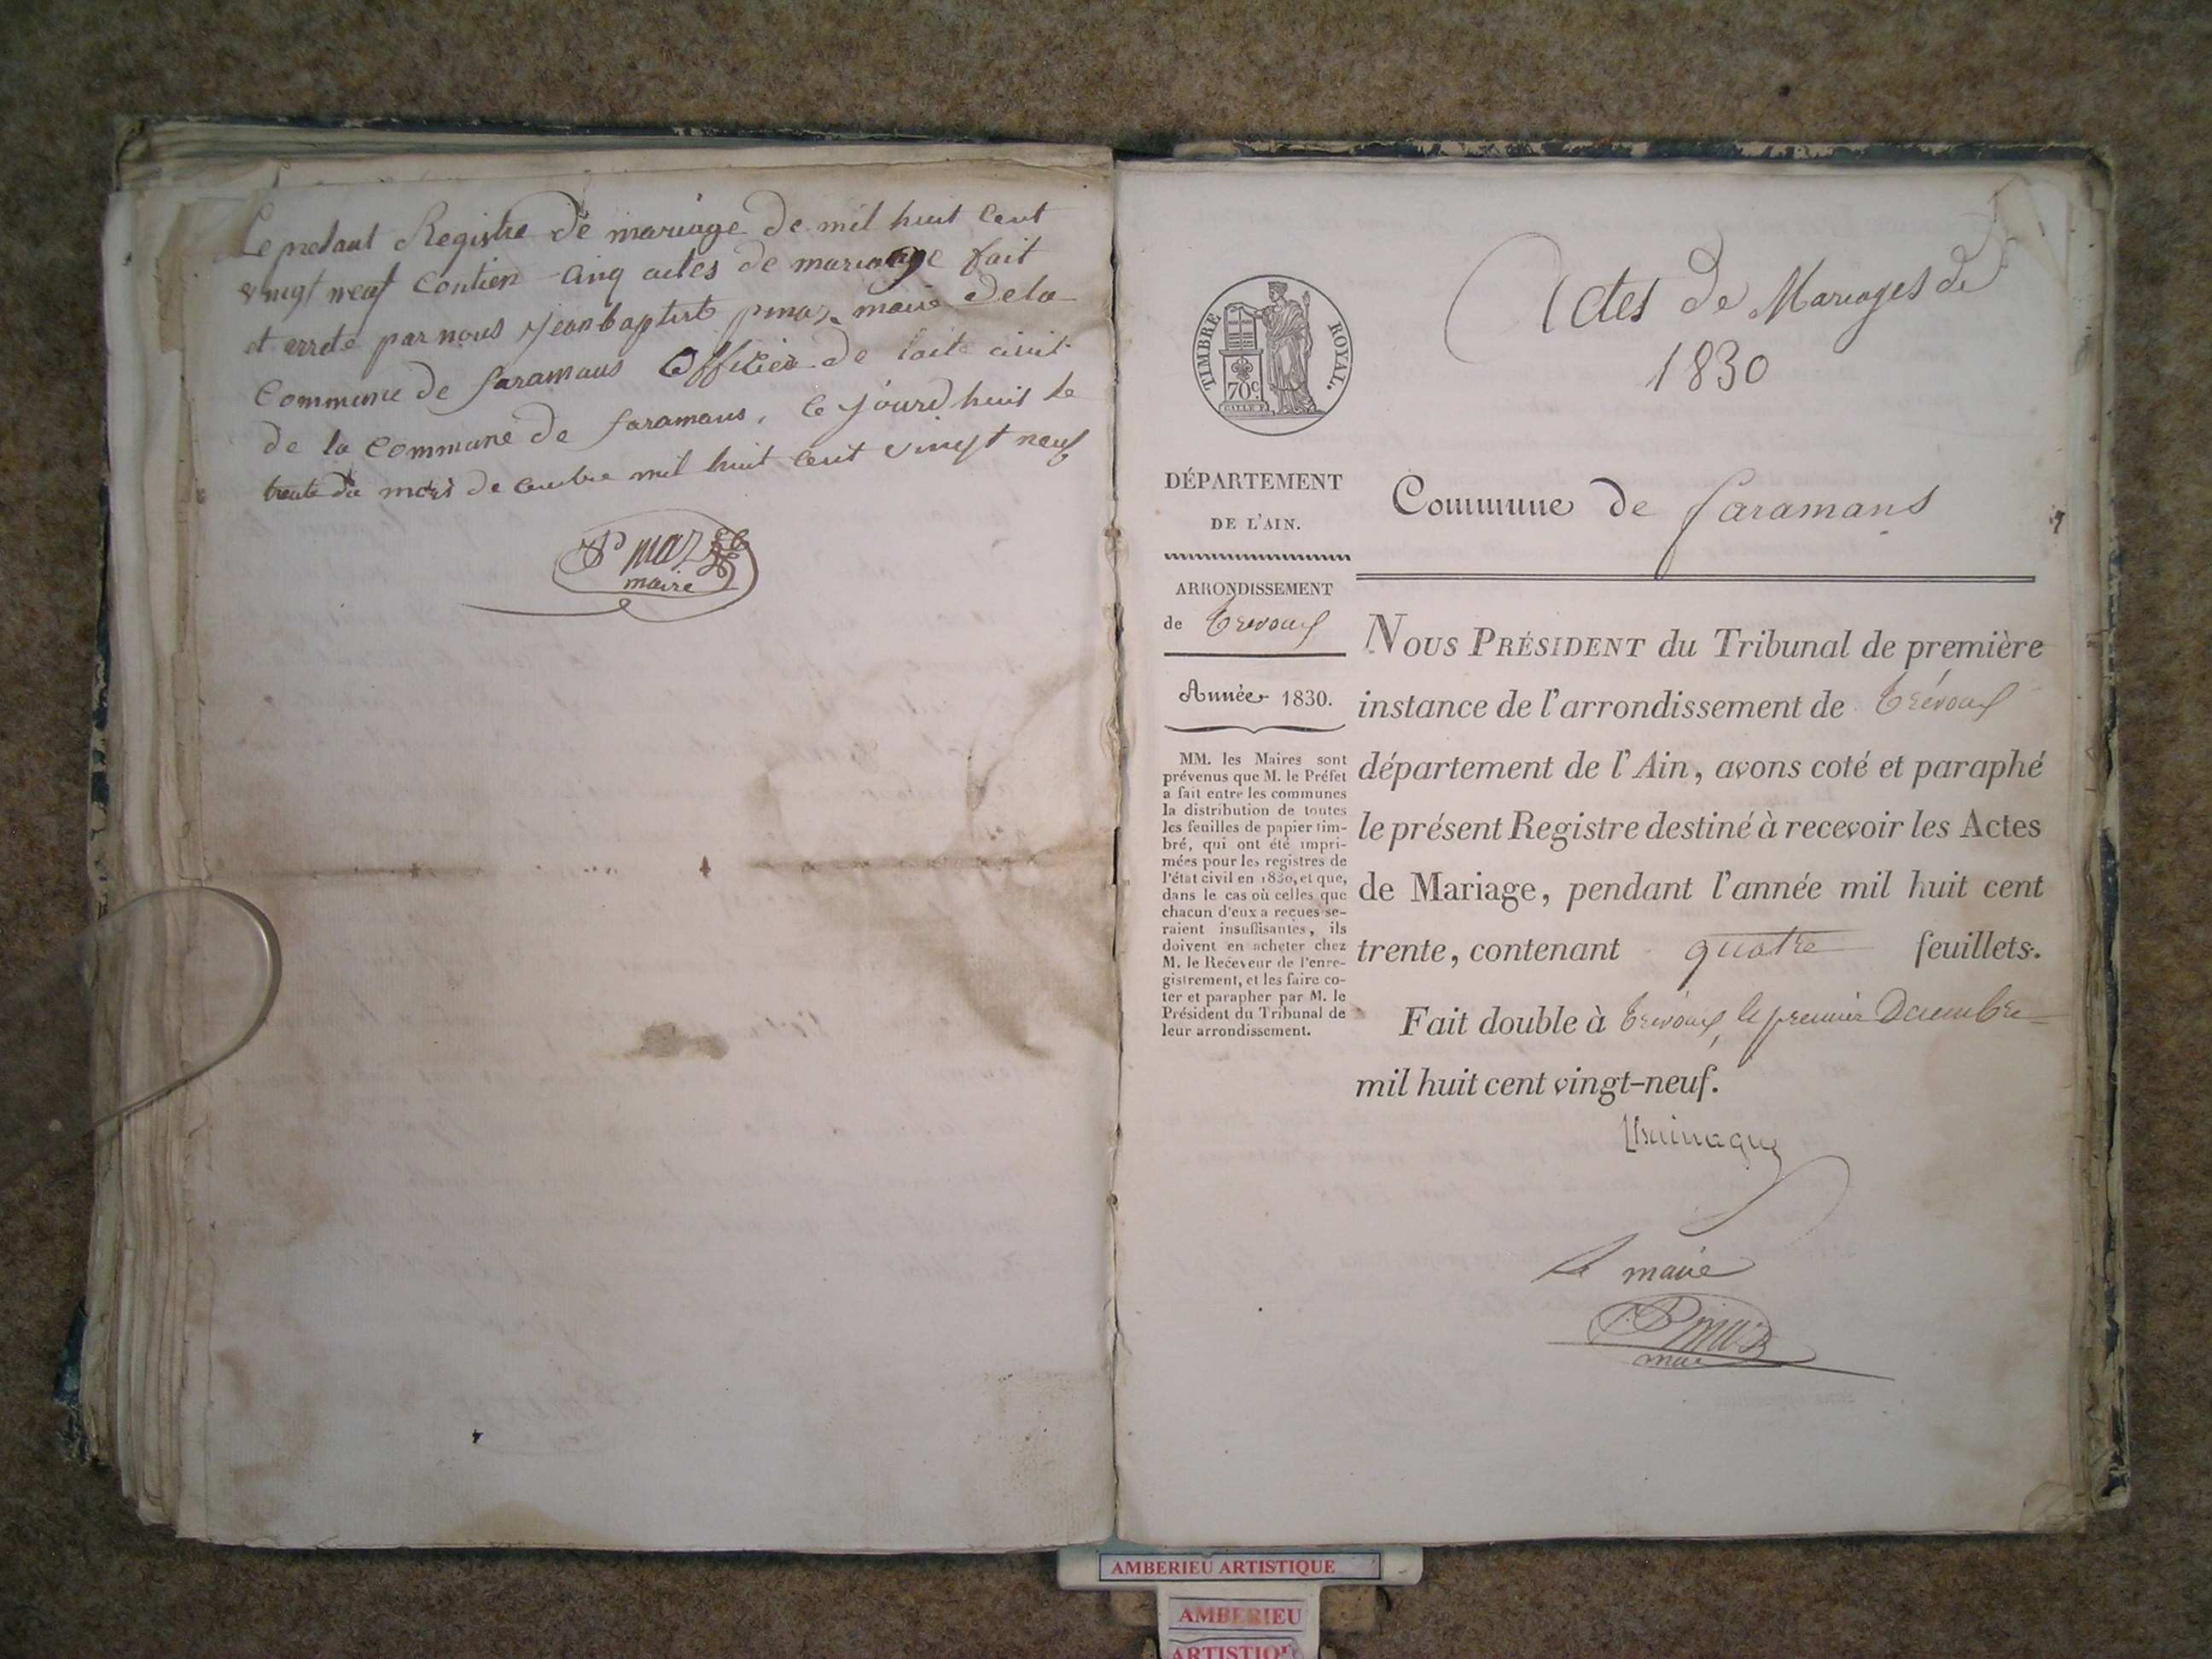 Le presant Registre de mariage de mil huit Cent
vingt neuf Contien Cinq actes de mariage fait
et arrete par nous jean baptist pmaz maire de la
Commune de faramans Officier de laite civil
de la Commune de faramans, le jourd huit le
trente du mois de cembre mil huit Cent vingt neuf
P maz
maire
Actes de Mariages de
1830
TIMBRE ROYAL.
70c
DÉPARTEMENT
DE L'AIN.
Commune de faramans
ARRONDISSEMENT
de Trévoux
Année 1830.
MM. les Maires sont
prévenus que M. le Préfet
a fait entre les communes
la distribution de toutes
les feuilles de papier tim-
bré, qui ont été impri-
mées pour les registres de
l'état civil en 1830, et que,
dans le cas où celles que
chacun d'eux a reçues se-
raient insuffisantes, ils
doivent en acheter chez
M. le Receveur de l'enre-
gistrement, et les faire co-
ter et parapher par M. le
Président du Tribunal de
leur arrondissement.
NOUS PRÉSIDENT du Tribunal de première
instance de l'arrondissement de Trévoux
département de l'Ain, avons coté et paraphé
le présent Registre destiné à recevoir les Actes
de Mariage, pendant l'année mil huit cent
trente, contenant quatre feuillets.
Fait double à Trévoux, le premier Decembre
mil huit cent vingt-neuf.
Le maire
P maz
maire
AMBERIEU ARTISTIQUE
AMBERIEU
ARTISTIQUE